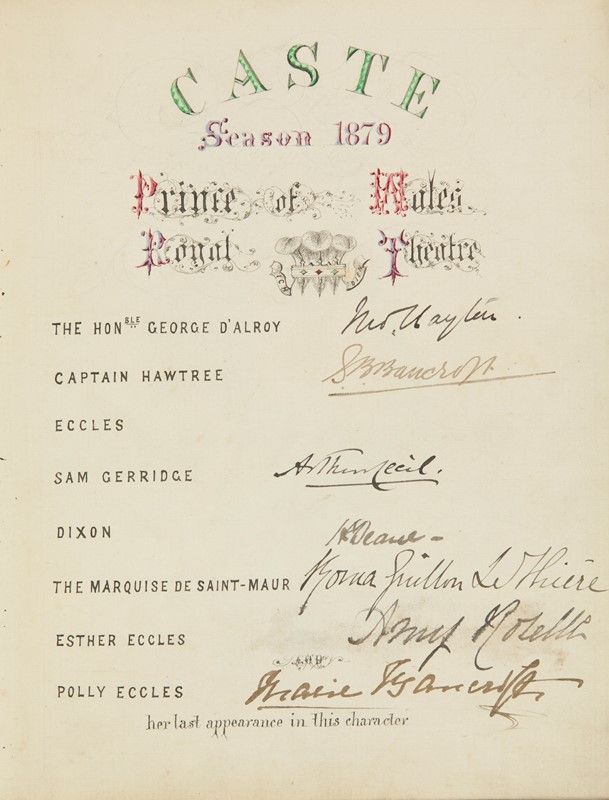 CASTE
Season 1879
Prince of Wales
Royal Theatre
ICH DIEN
THE HONBLE GEORGE D'ALROY Jno. Clayton.
CAPTAIN HAWTREE S B Bancroft.
ECCLES
SAM GERRIDGE Arthur Cecil.
DIXON H Deane -
THE MARQUISE DE SAINT-MAUR Roma Guillon Le Thière
ESTHER ECCLES Amy Roselle
AND
POLLY ECCLES Marie Bancroft
her last appearance in this character